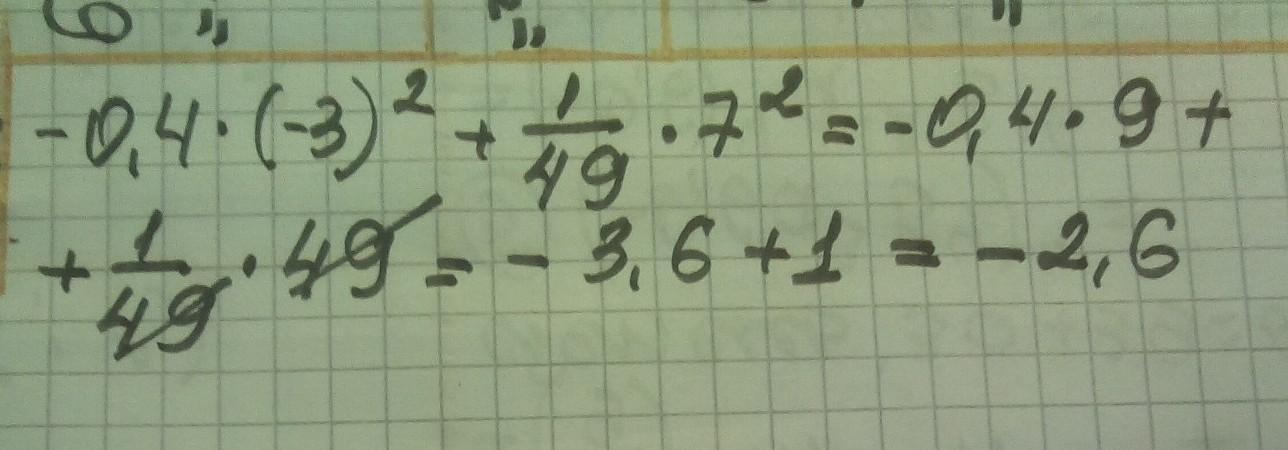 -0,4 · (-3)² + 1/49 · 7² = -0,4 · 9 +
+ 1/49 · 49 = - 3,6 + 1 = - 2,6